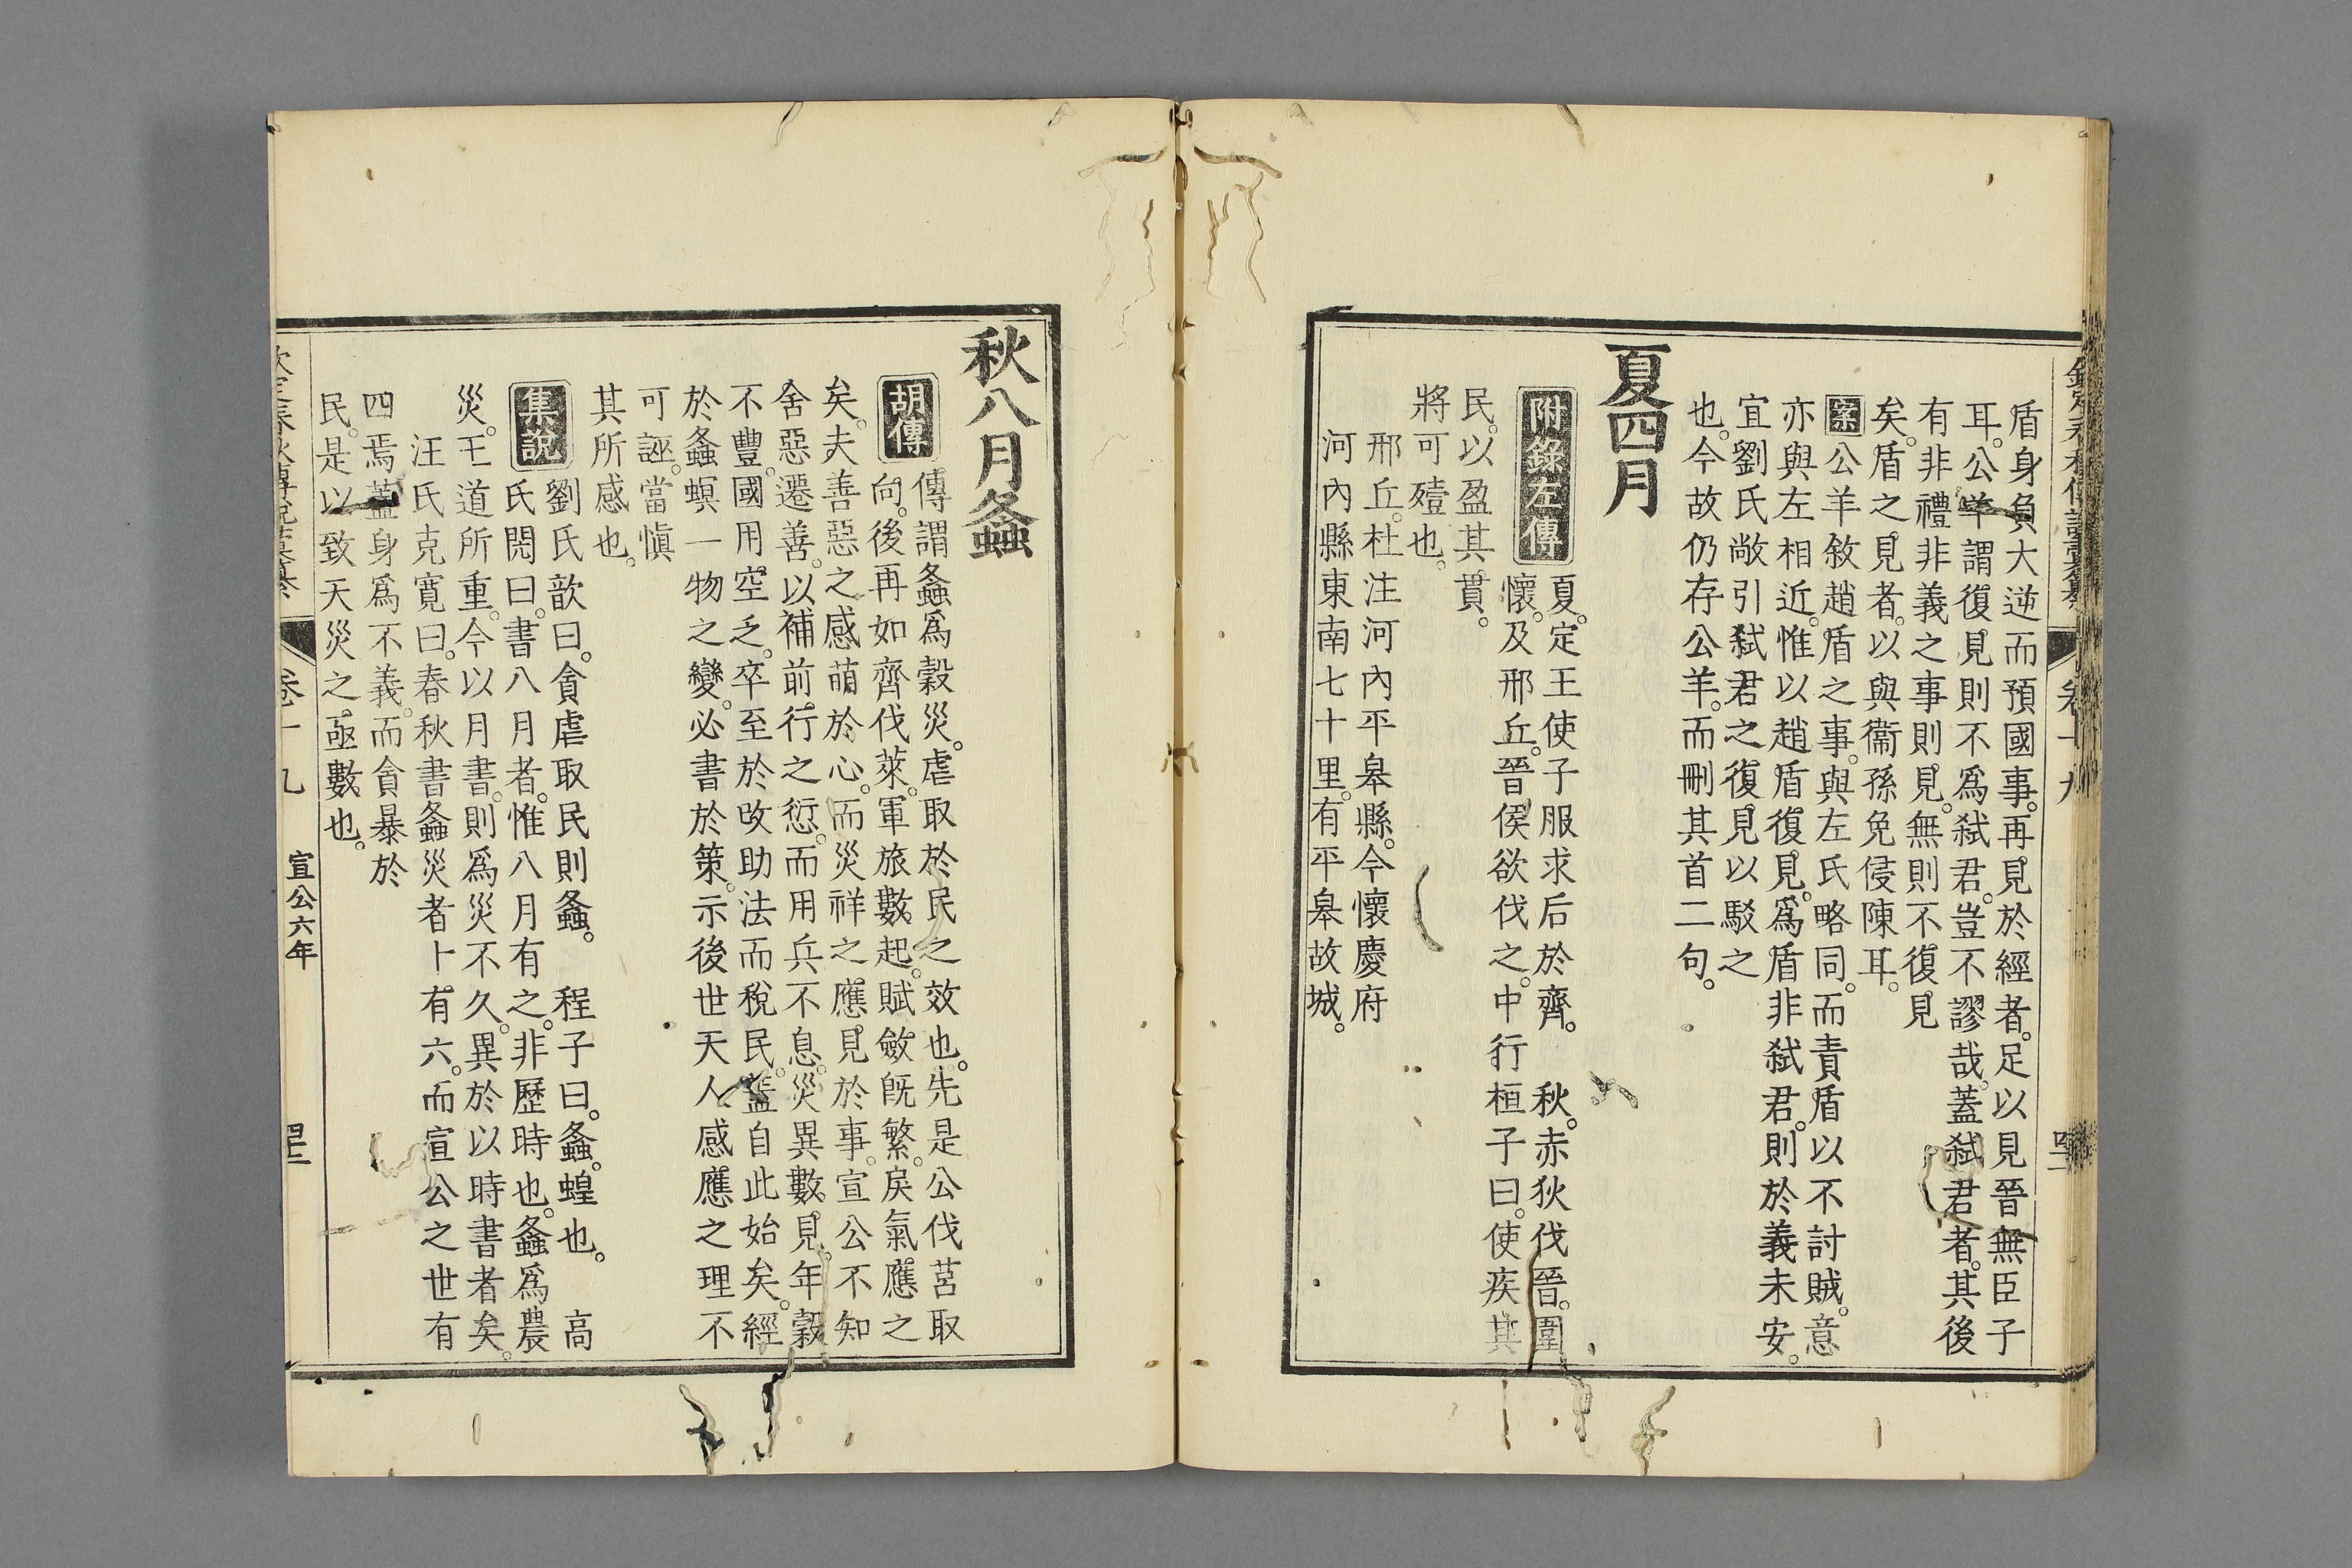 盾身負大逆而預國事。再見於經者。足以見晉無臣子
耳。公羊謂復見則不爲弑君。豈不謬哉。蓋弑君者。其後
有非禮非義之事則見。無則不復見
矣。盾之見者。以與衞孫免侵陳耳。
案公羊敘趙盾之事。與左氏略同。而責盾以不討賊。意
亦與左相近。惟以趙盾復見。爲盾非弑君。則於義未安。
宜劉氏敞引弑君之復見以駁之
也。今故仍存公羊。而刪其首二句。
夏四月
附錄左傳 夏。定王使子服求后於齊。 秋。赤狄伐晉。圍
懷。及邢丘。晉侯欲伐之。中行桓子曰。使疾其
民。以盈其貫。
將可殪也。
邢丘。杜注河內平皋縣。今懷慶府
河內縣東南七十里。有平皋故城。
秋八月螽
胡傳 傳謂螽爲穀災。虐取於民之效也。先是公伐莒取
向。後再如齊伐萊。軍旅數起。賦斂旣繁。戾氣應之
矣。夫善惡之感萌於心。而災祥之應。見於事。宣公不知
舍惡遷善。以補前行之愆。而用兵不息。災異數見。年穀
不豐。國用空乏。卒至於改助法而稅民。蓋自此始矣。經
於螽螟一物之變。必書於策。示後世天人感應之理不
可誣。當愼
其所感也。
集說 劉氏歆曰。貪虐取民則螽。 程子曰。螽。蝗也。 高
氏閌曰。書八月者。惟八月有之。非歷時也。螽爲農
災。王道所重。今以月書。則爲災不久。異於以時書者矣。
汪氏克寬曰。春秋書螽災者十有六。而宣公之世有
四焉。蓋身爲不義。而貪暴於
民。是以致天災之亟數也。
宣公六年